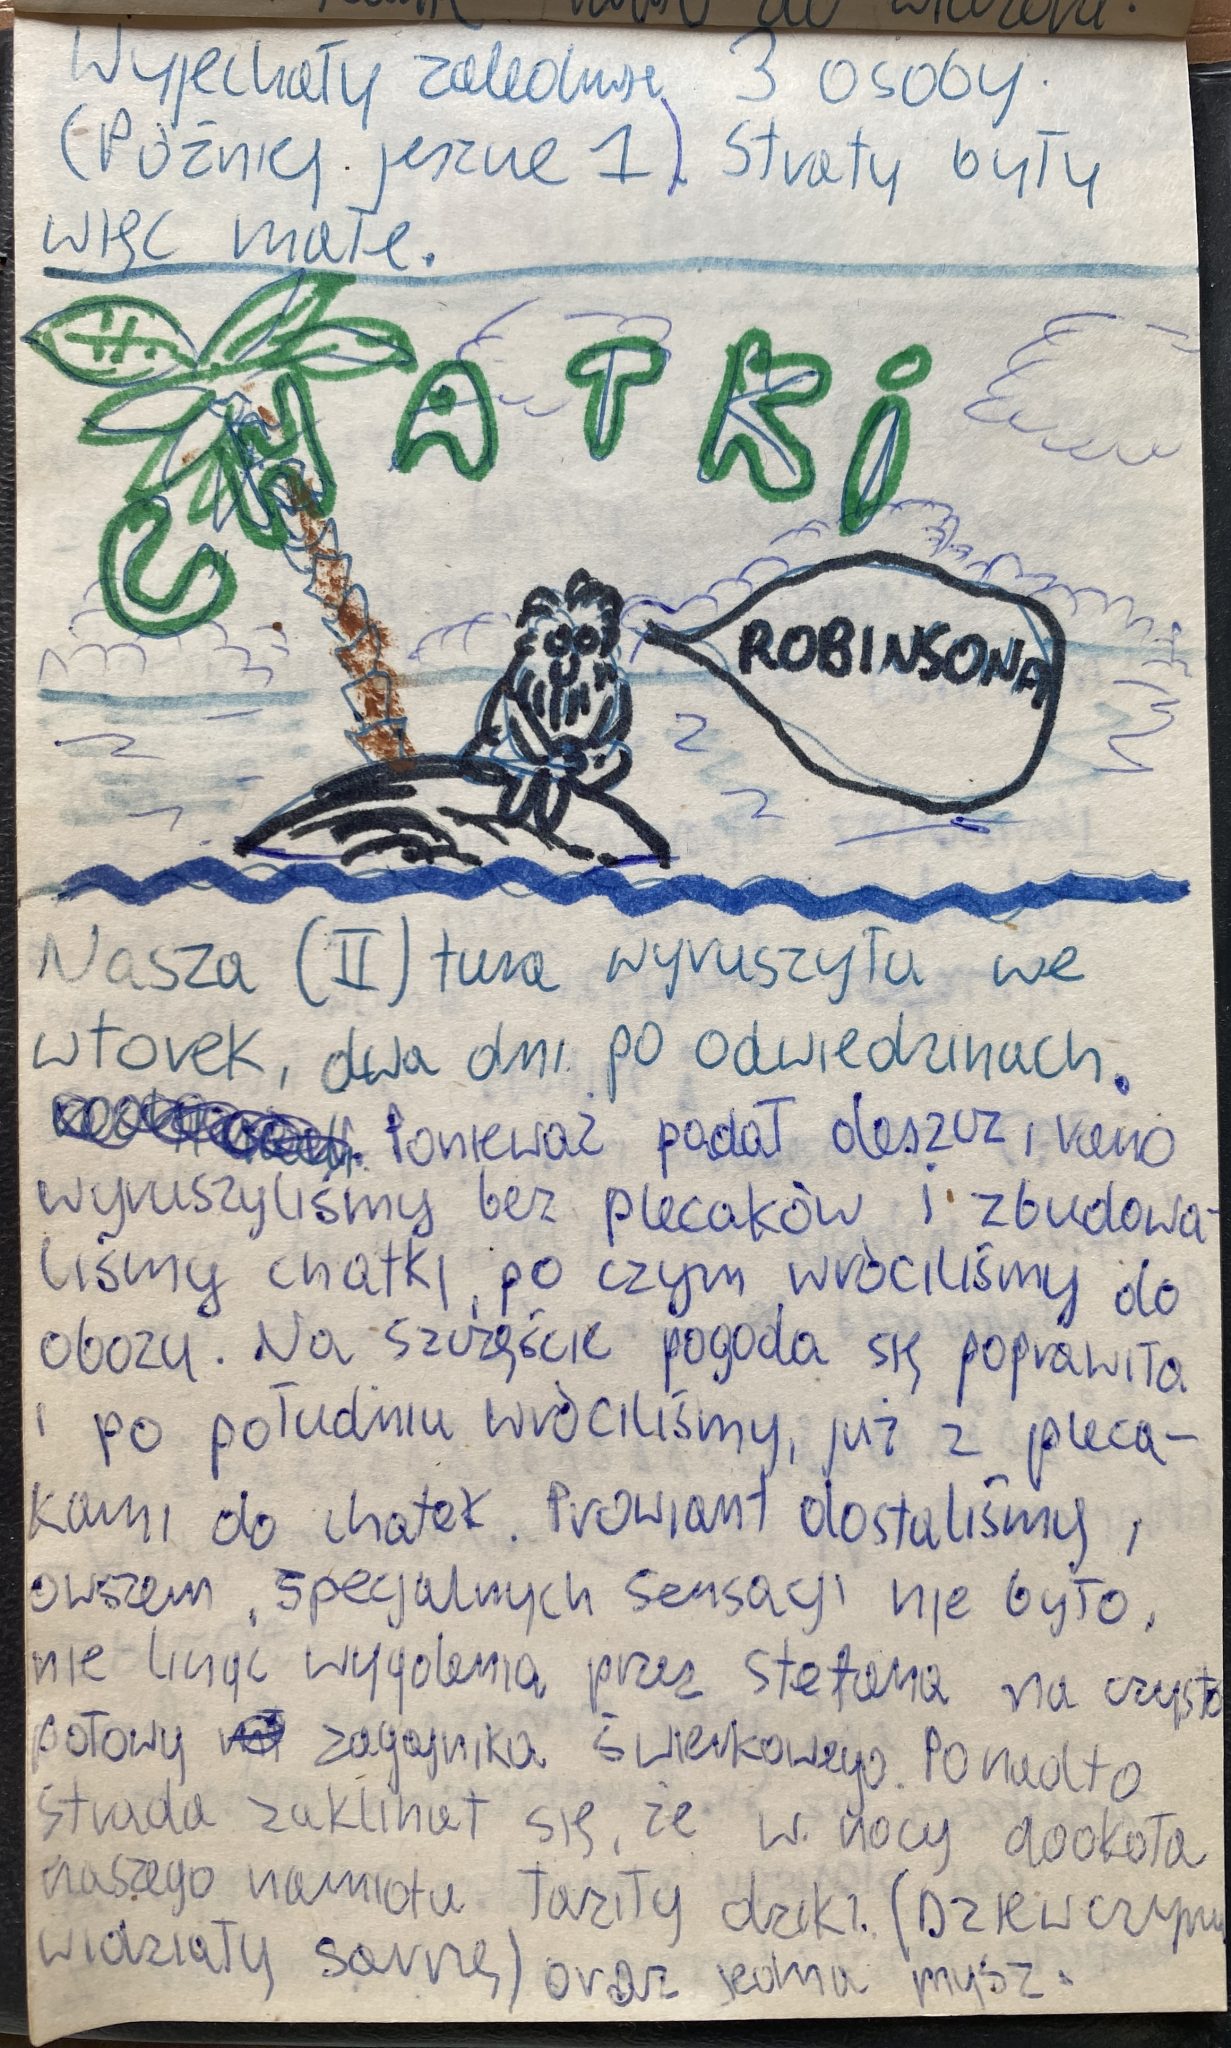 do wieczora.
Wyjechały zaledwie 3 osoby.
(Później jeszcze 1). Straty były
więc małe.
CHATKI
ROBINSONA
Nasza (II) tura wyruszyła we
wtorek, dwa dni po odwiedzinach.
Ponieważ padał deszcz, rano
wyruszyliśmy bez plecaków i zbudowa-
liśmy chatki, po czym wróciliśmy do
obozu. Na szczęście pogoda się poprawiła
i po południu wróciliśmy, już z pleca-
kami do chatek. Prowiant dostaliśmy,
owszem, specjalnych sensacji nie było,
nie licząc wygolenia przez Stefana na czysto
połowy zagajnika świerkowego. Ponadto
Strada zaklinał się, że w nocy dookoła
naszego namiotu łaziły dziki. (Dziewczyny
widziały sarnę) oraz jedna mysz.